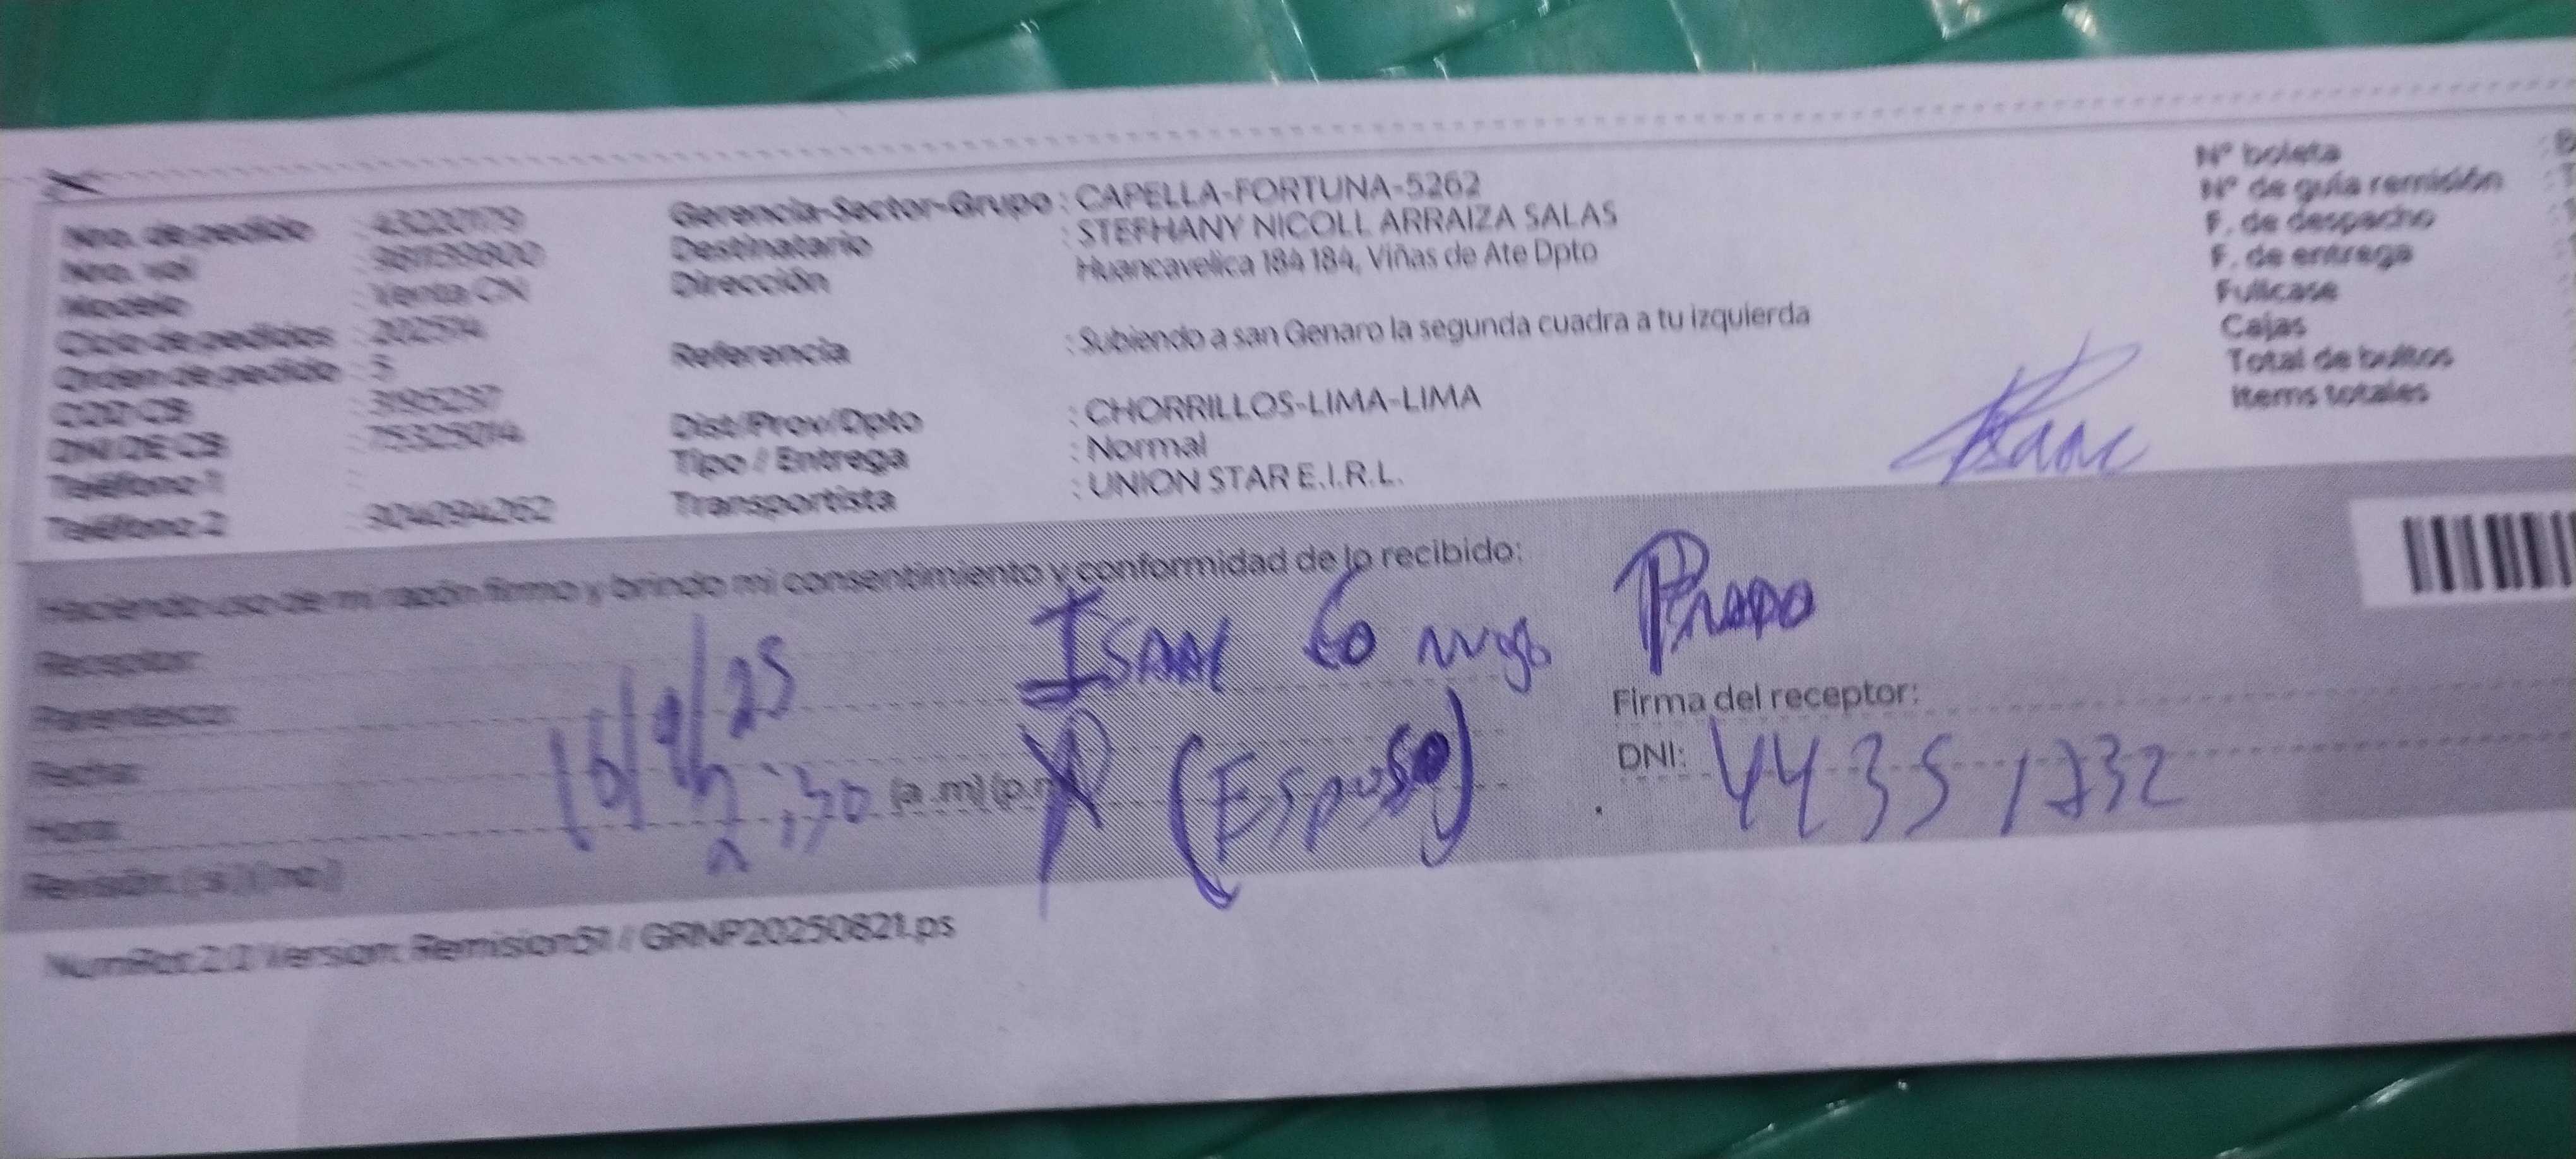 Nro. de pedido
Nro. vol
Modelo : Venta CN
Ciclo de pedidos : 202514
Orden de pedido : 5
COD CB
DNI DE CB
Teléfono 1 :
Teléfono 2
Gerencia-Sector-Grupo : CAPELLA-FORTUNA-5262
Destinatario : STEFHANY NICOLL ARRAIZA SALAS
Dirección Huancavelica 184 184, Viñas de Ate Dpto
Referencia : Subiendo a san Genaro la segunda cuadra a tu izquierda
Dist/Prov/Dpto : CHORRILLOS-LIMA-LIMA
Tipo / Entrega : Normal
Transportista : UNION STAR E.I.R.L.
N° boleta
N° de guía remisión
F. de despacho
F. de entrega
Fullcase
Cajas
Total de bultos
Items totales
Isaac
Haciendo uso de mi razón firmo y brindo mi consentimiento y conformidad de lo recibido:
Receptor: Isaac Prado
Parentesco: (Esposo)
Fecha: 16/9/25
Hora: (a .m) (p.m)
Revisión: ( si ) ( no )
Firma del receptor:
DNI: 44351732
Version: Remision51 / GRNP20250821.ps